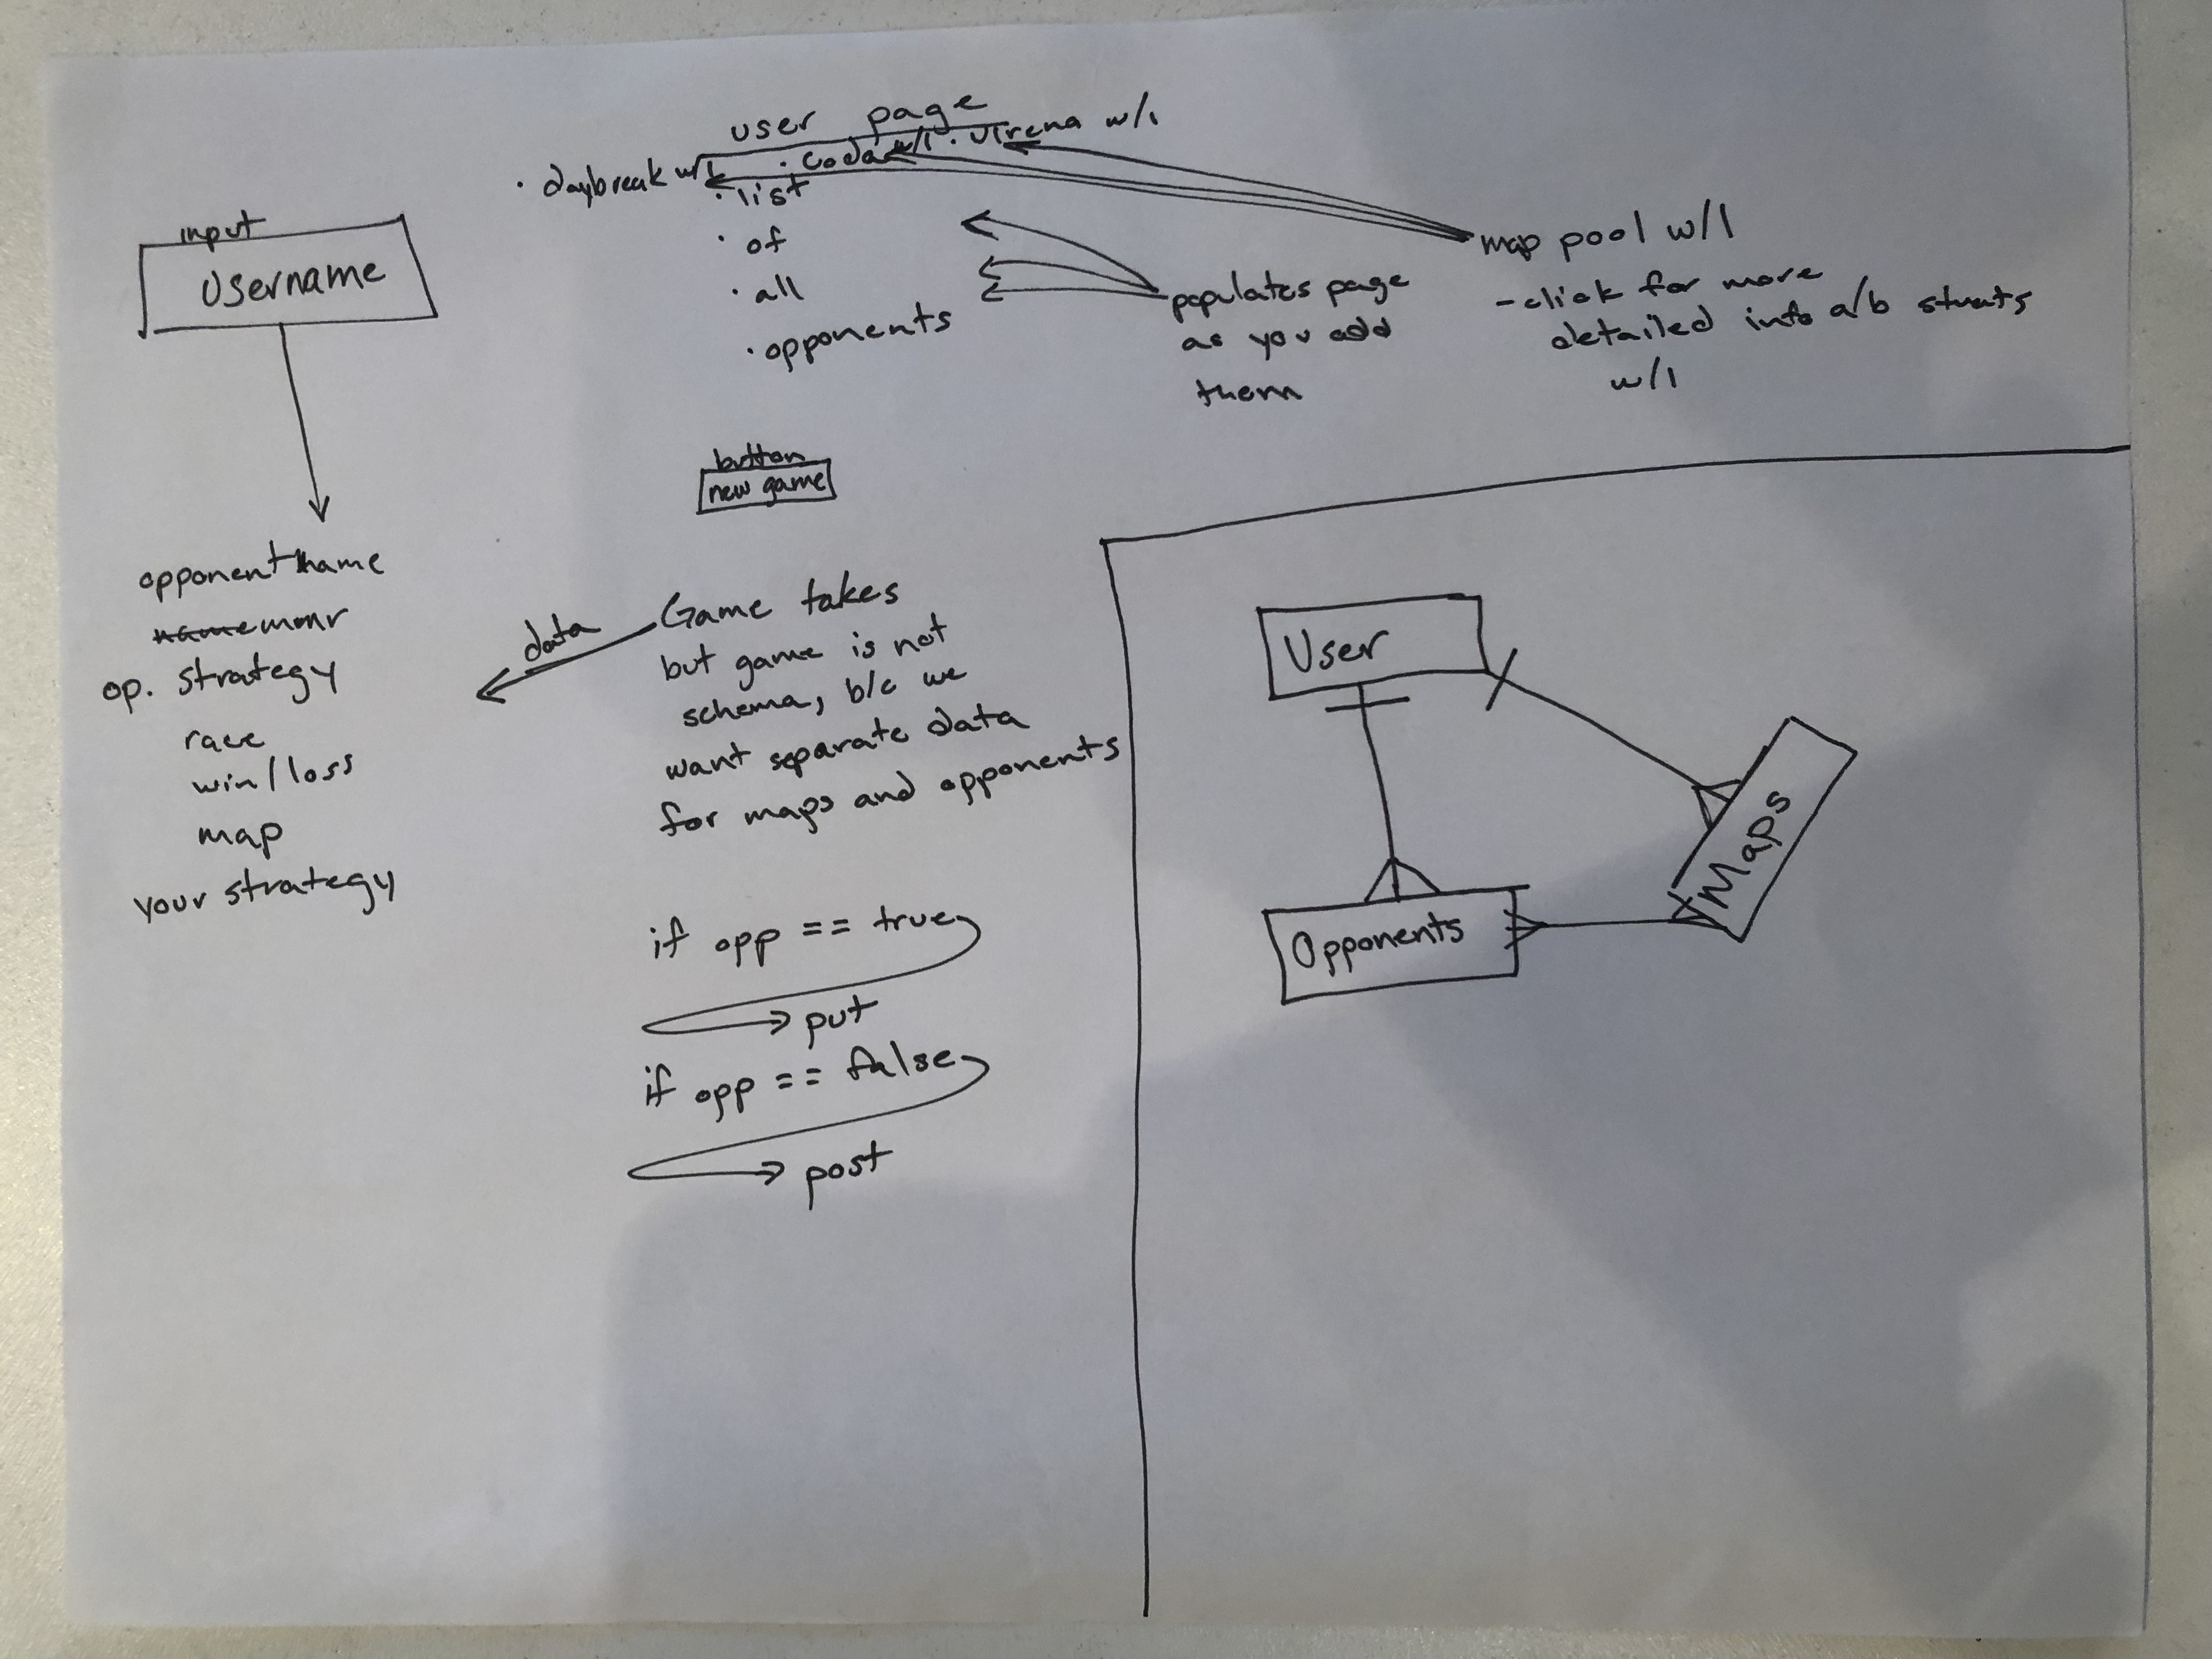 input
Username
opponent name
op. strategy
race
win/loss
map
your strategy
user page
. daybreak w/l . coda w/l . Jrena w/l
. list
. of
. all
. opponents
populates page
as you add
them
map pool w/l
- click for more
detailed into a/b strats
w/l
button
new game
data
Game takes
but game is not
schema, b/c we
want separate data
for maps and opponents
if opp == true
put
if opp == false
post
User
Opponents
Maps